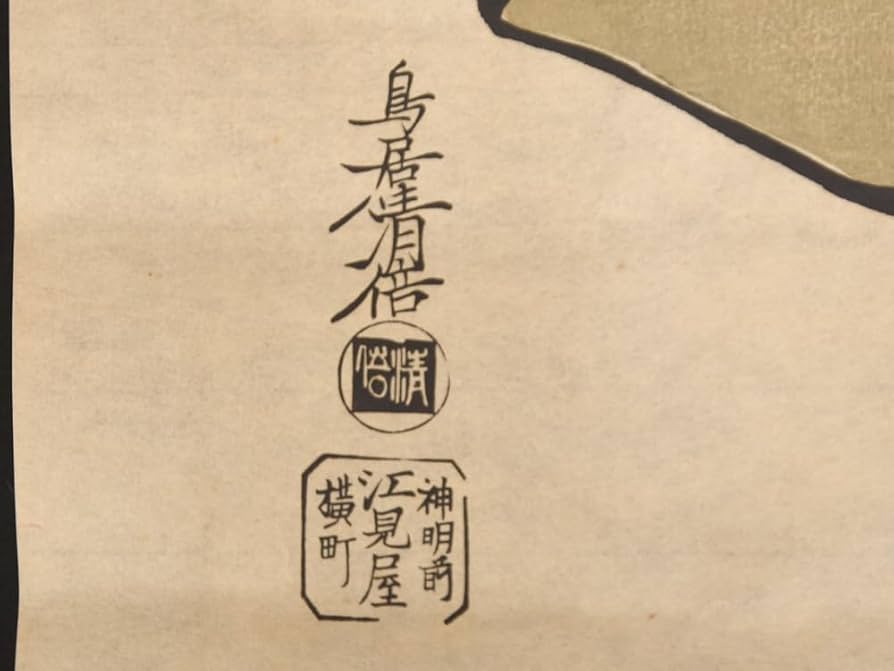 鳥居清倍
清倍
神明前
江見屋
横町